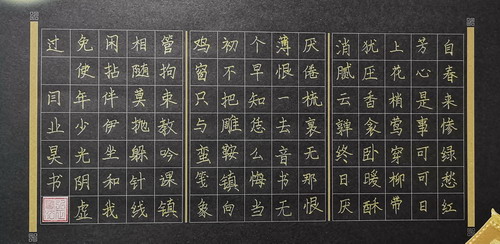 自春来惨绿愁红
芳心是事可可日
上花梢莺穿柳带
犹压香衾卧暖酥
消腻云軃终日厌
厌倦梳裹无那恨
薄恨一去音书无
个早知恁么悔当
初不把雕鞍镇向
鸡窗只与蛮笺象
管拘束教吟课镇
相随莫抛躲针线
闲拈伴伊坐和我
免使年少光阴虚
过
闫业昊书